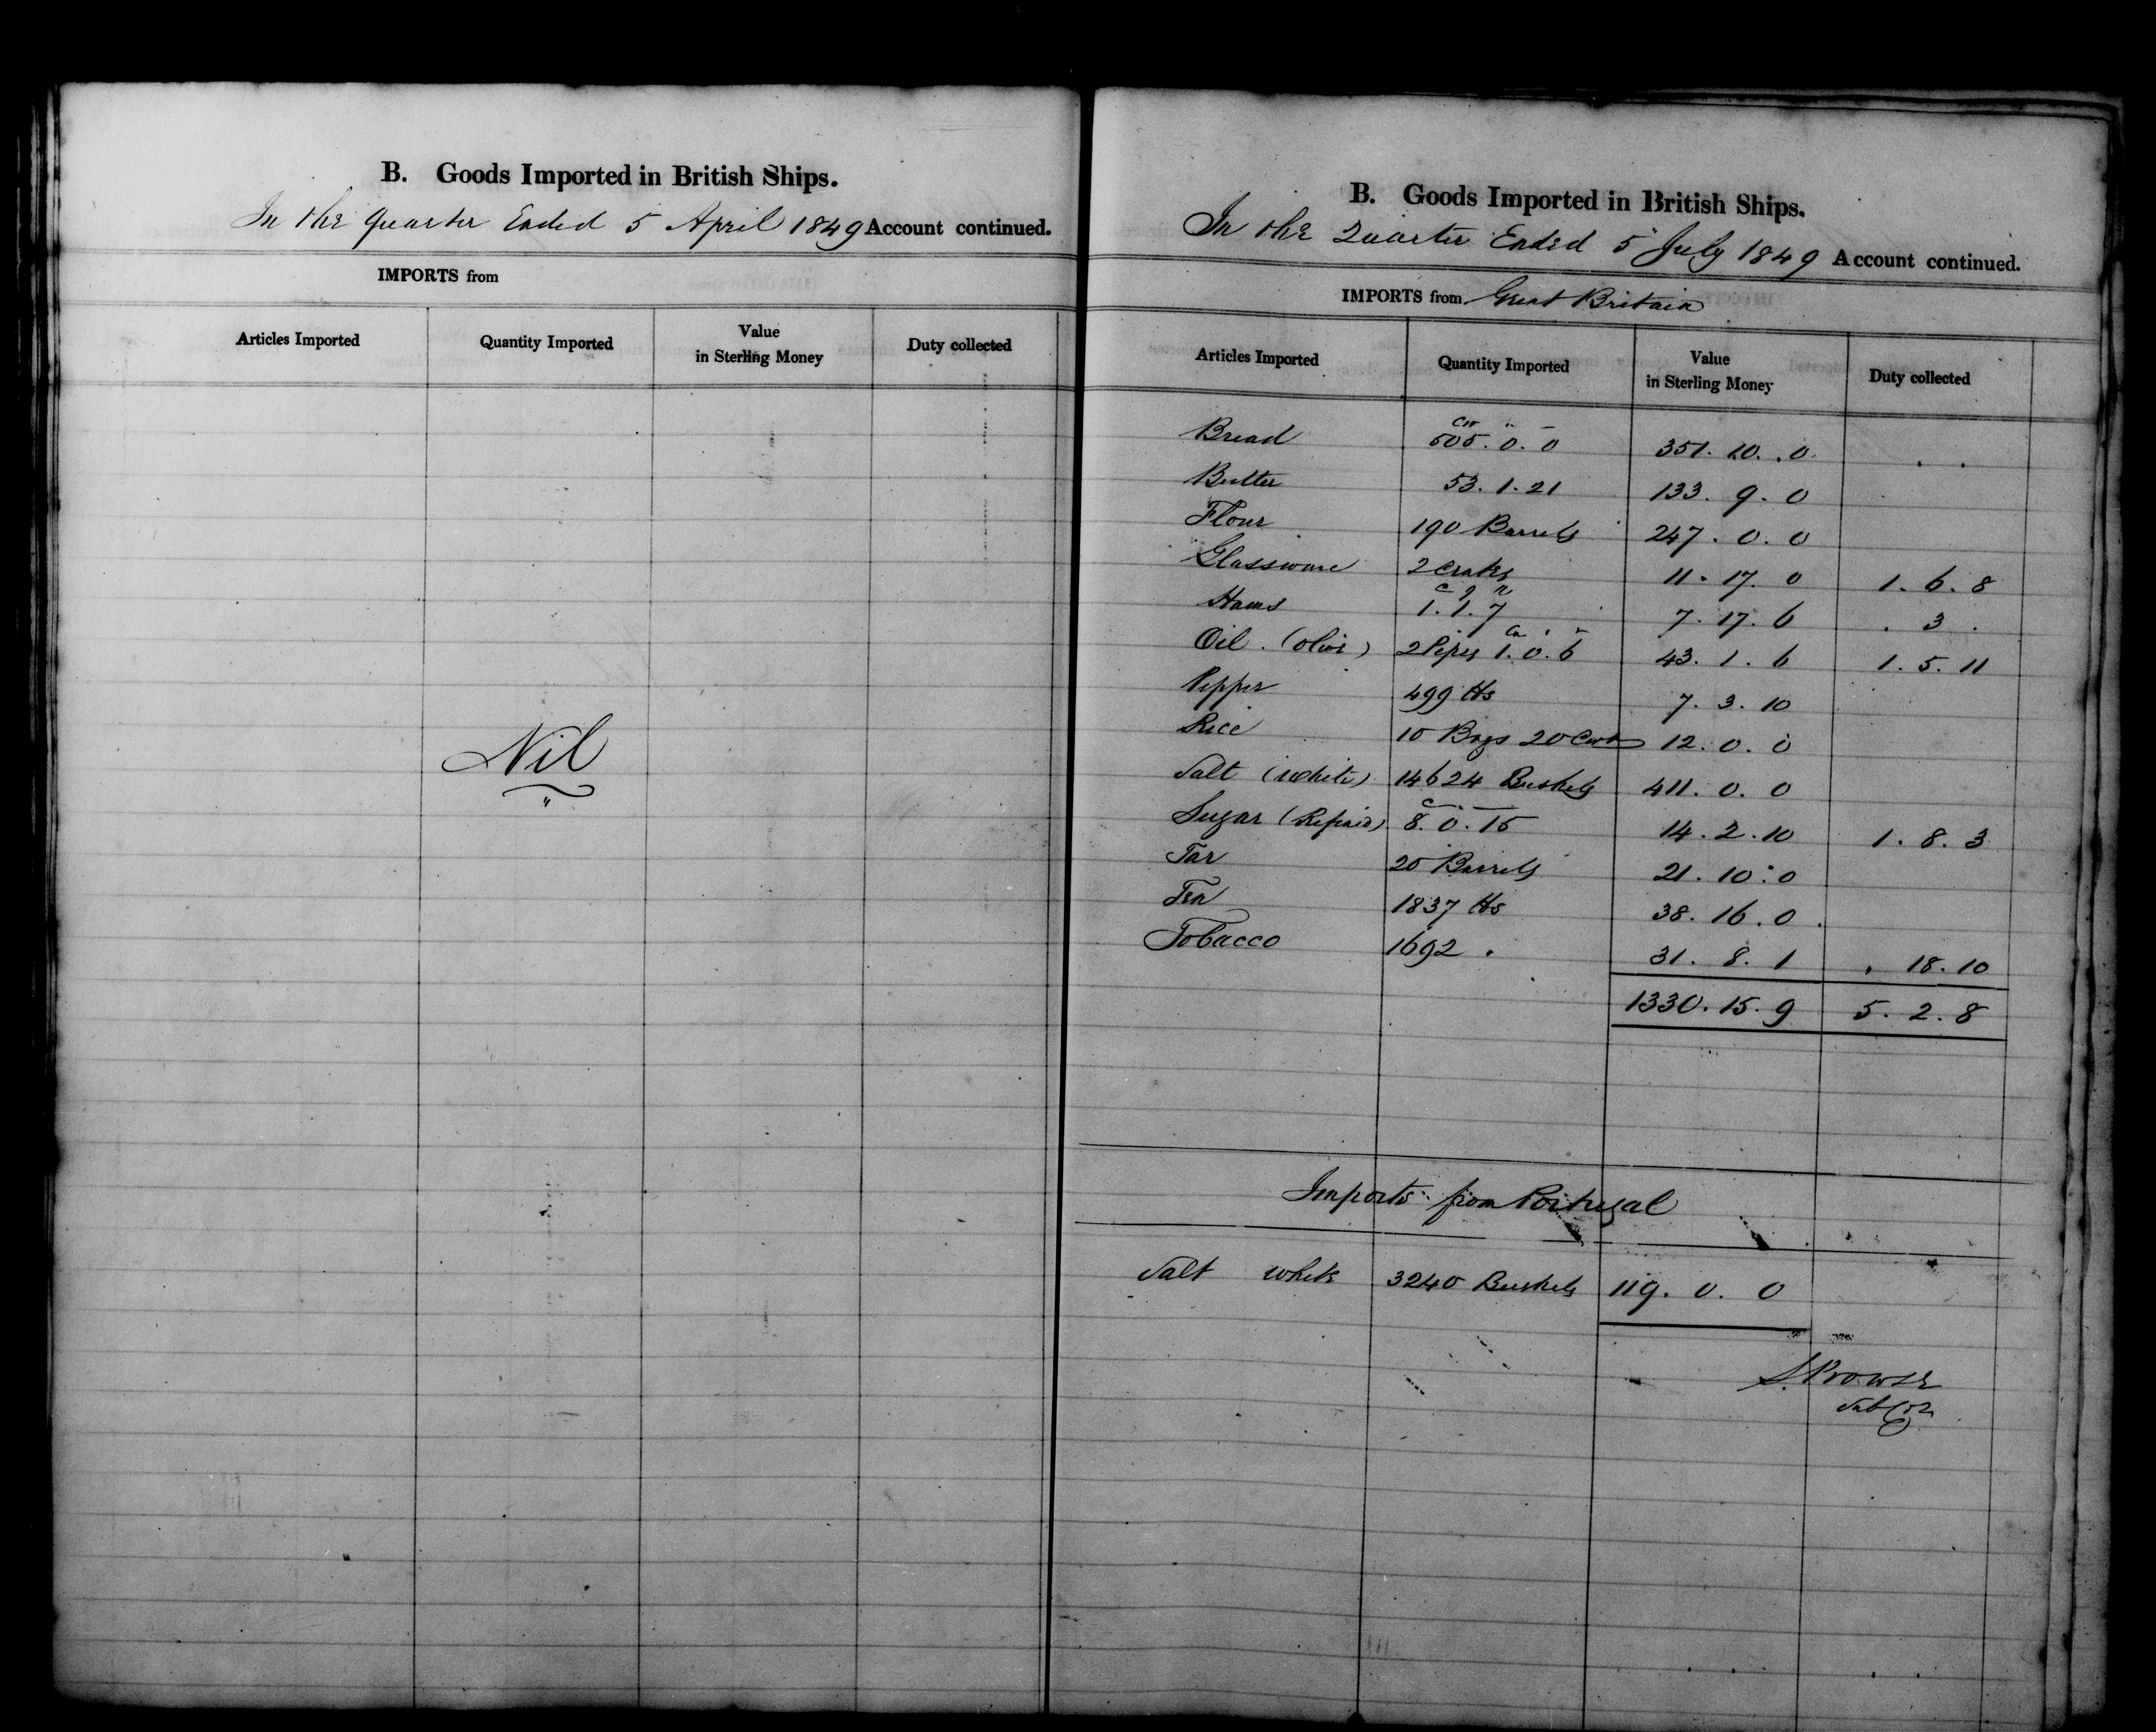 B. Goods Imported in British Ships.
In the Quarter Ended 5 April 1849 Account continued.
IMPORTS from
Articles Imported Quantity Imported Value in Sterling Money Duty collected
Nil
B. Goods Imported in British Ships.
In the Quarter Ended 5 July 1849 Account continued.
IMPORTS from Great Britain
Articles Imported Quantity Imported Value in Sterling Money Duty collected
Bread 505. 0. 0 351. 10. 0
Butter 53. 1. 21 133. 9. 0
Flour 190 Barrels 247. 0. 0
Glassware 2 Crates 11. 17. 0 1. 6. 8
Hams 1. 1. 7 7. 17. 6 . 3 .
Oil (Olive) 2 Pipes 1. 0. 6 43. 1. 6 1. 5. 11
Pepper 499 lbs 7. 3. 10
Rice 10 Bags 20 Cwt 12. 0. 0
Salt (White) 14624 Bushels 411. 0. 0
Sugar (Refined) 8. 0. 15 14. 2. 10 1. 8. 3
Tar 20 Barrels 21. 10. 0
Tea 1837 lbs 38. 16. 0
Tobacco 1692 " 31. 8. 1 . 18. 10
1330. 15. 9 5. 2. 8
Imports from Portugal
Salt white 3240 Bushels 119. 0. 0
S. Prowse
Sub Col